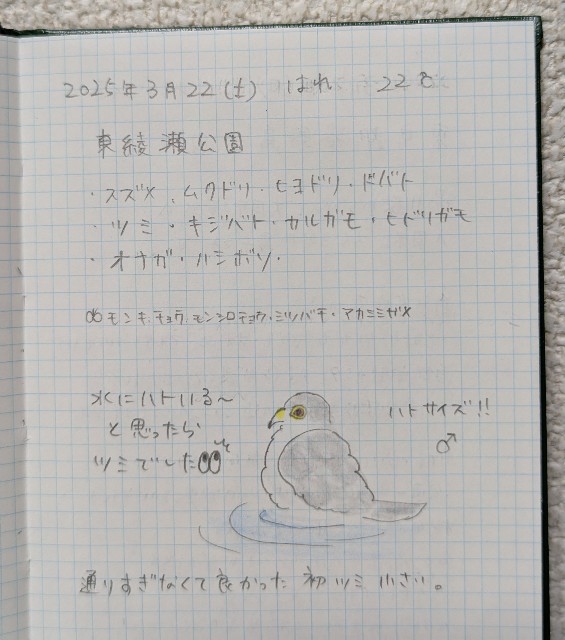 2025年3月22(土) はれ 22℃
東綾瀬公園
・スズメ・ムクドリ・ヒヨドリ・ドバト
・ツミ・キジバト・カルガモ・ヒドリガモ
・オナガ・ハシボソ・
モンキチョウ・モンシロチョウ・ミツバチ・アカミミガメ
水にハトいる〜
と思ったら
ツミでした
ハトサイズ!!
♂
通りすぎなくて良かった 初ツミ 小さい。